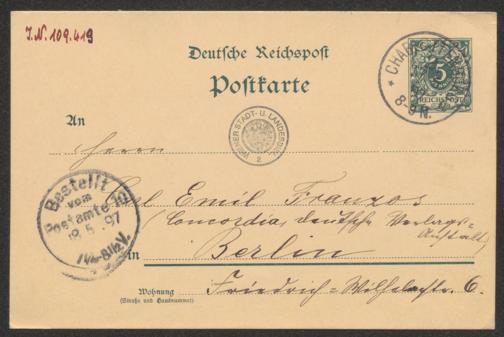 J.N. 109.419
Deutsche Reichspost
Postkarte
5
REICHSPOST
8-9 N.
An
WIENER STADT- U. LANDESBIBL.
2
Herrn
Bestellt
vom
Postamte
18.5.97
Carl Emil Franzos
(Concordia, deutsche Verlags-
Anstalt)
in Berlin
Wohnung Friedrich-Wilhelmstr. 6.
(Straße und Hausnummer)